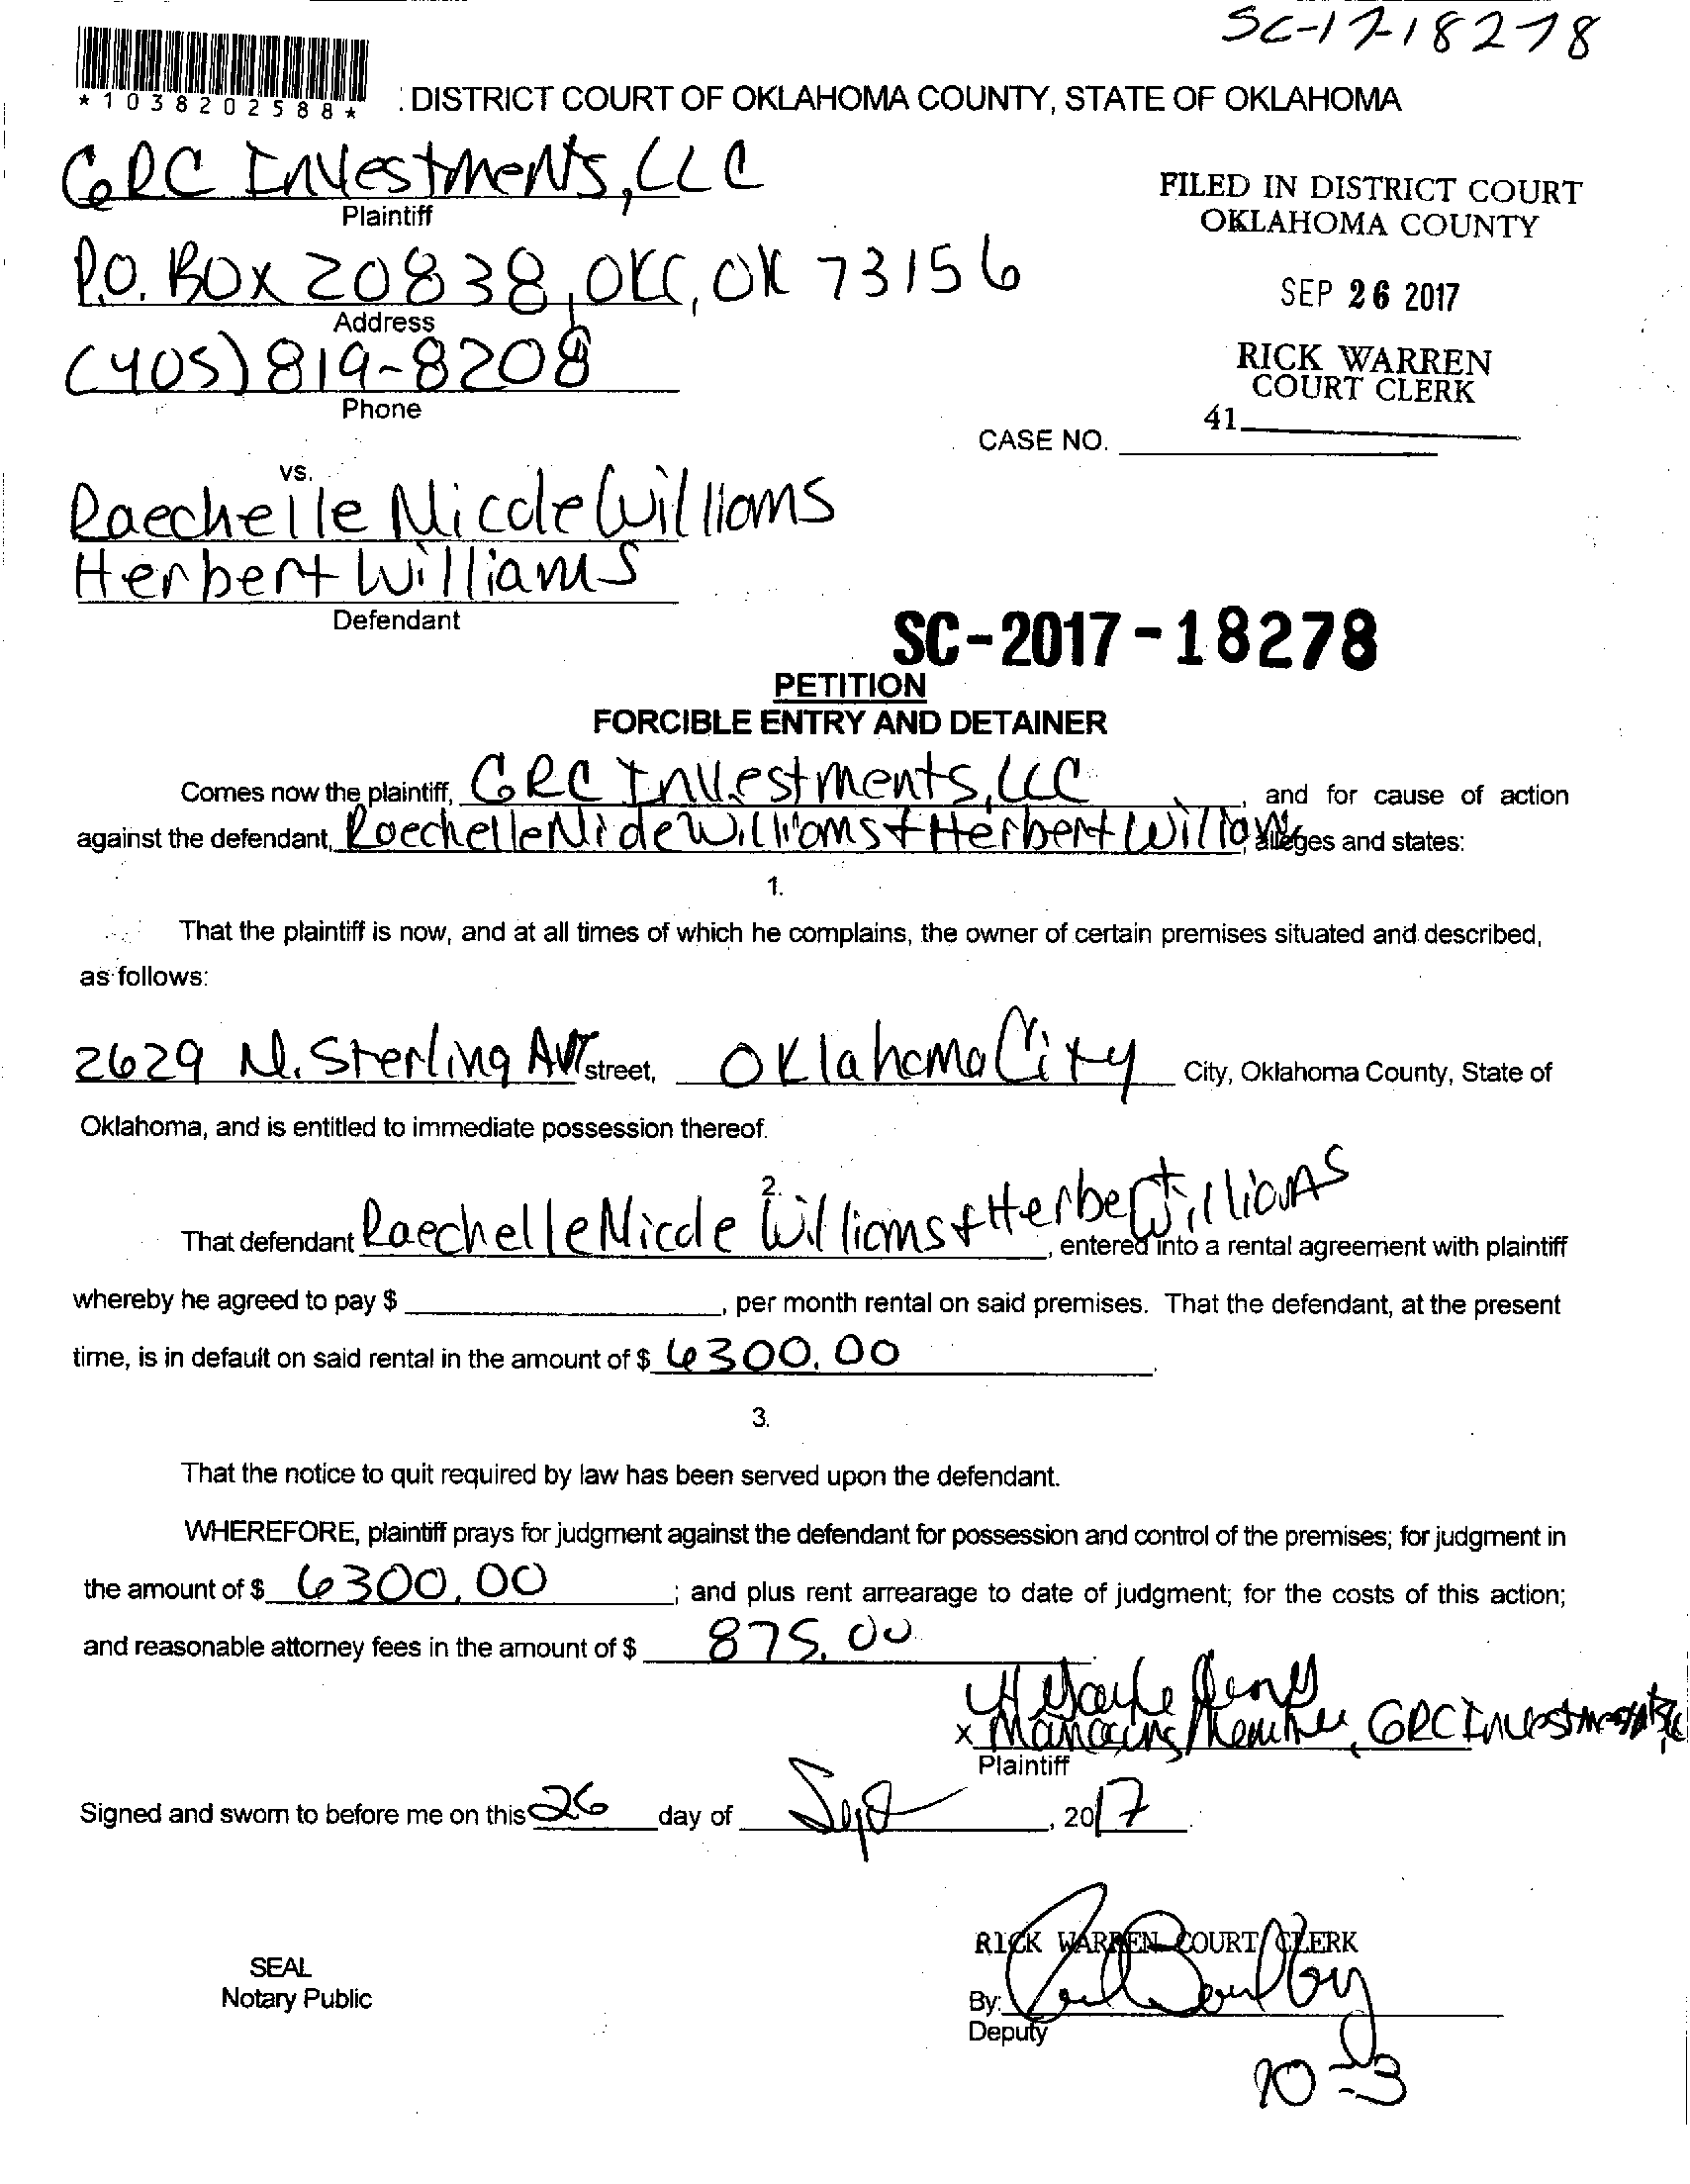 SC-17-18278
*1038202588*
: DISTRICT COURT OF OKLAHOMA COUNTY, STATE OF OKLAHOMA
GRC Investments, LLC
Plaintiff
FILED IN DISTRICT COURT
OKLAHOMA COUNTY
P.O. Box 20838, OKC, OK 73156
Address
SEP 26 2017
(405) 819-8208
Phone
RICK WARREN
COURT CLERK
41
CASE NO.
vs.
Raechelle Nicole Williams
Herbert Williams
Defendant
SC-2017-18278
PETITION
FORCIBLE ENTRY AND DETAINER
Comes now the plaintiff, GRC Investments, LLC, and for cause of action
against the defendant, Raechelle Nicole Williams + Herbert Williams, alleges and states:
1.
That the plaintiff is now, and at all times of which he complains, the owner of certain premises situated and described,
as follows:
2629 N. Sterling Ave street, Oklahoma City City, Oklahoma County, State of
Oklahoma, and is entitled to immediate possession thereof.
2.
That defendant Raechelle Nicole Williams + Herbert Williams, entered into a rental agreement with plaintiff
whereby he agreed to pay $ , per month rental on said premises. That the defendant, at the present
time, is in default on said rental in the amount of $ 6300.00.
3.
That the notice to quit required by law has been served upon the defendant.
WHEREFORE, plaintiff prays for judgment against the defendant for possession and control of the premises; for judgment in
the amount of $ 6300.00; and plus rent arrearage to date of judgment; for the costs of this action;
and reasonable attorney fees in the amount of $ 875.00.
x Managing Member, GRC Investments, LLC
Plaintiff
Signed and sworn to before me on this 26 day of Sept, 2017.
RICK WARREN COURT CLERK
SEAL
Notary Public
By:
Deputy